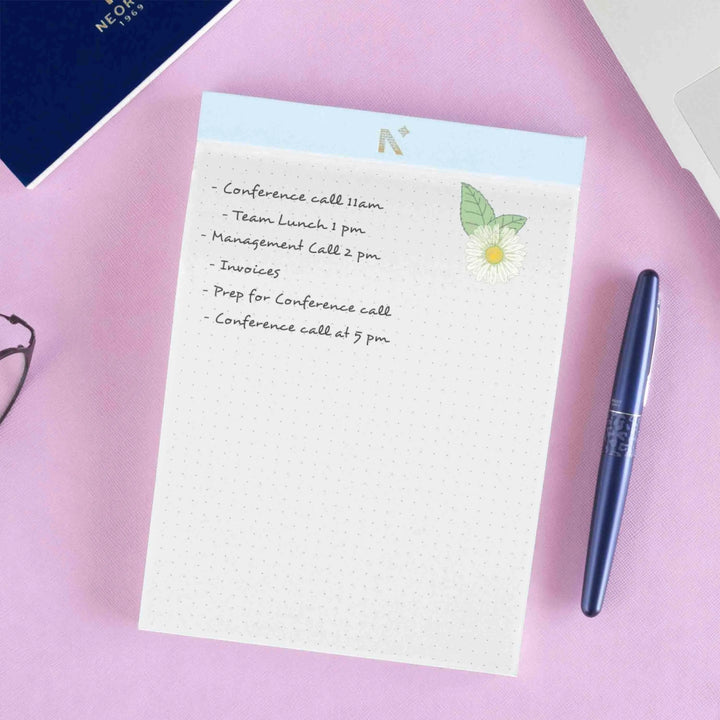 NEOR
1969
N
- Conference call 11am
- Team Lunch 1 pm
- Management Call 2 pm
- Invoices
- Prep for Conference call
- Conference call at 5 pm